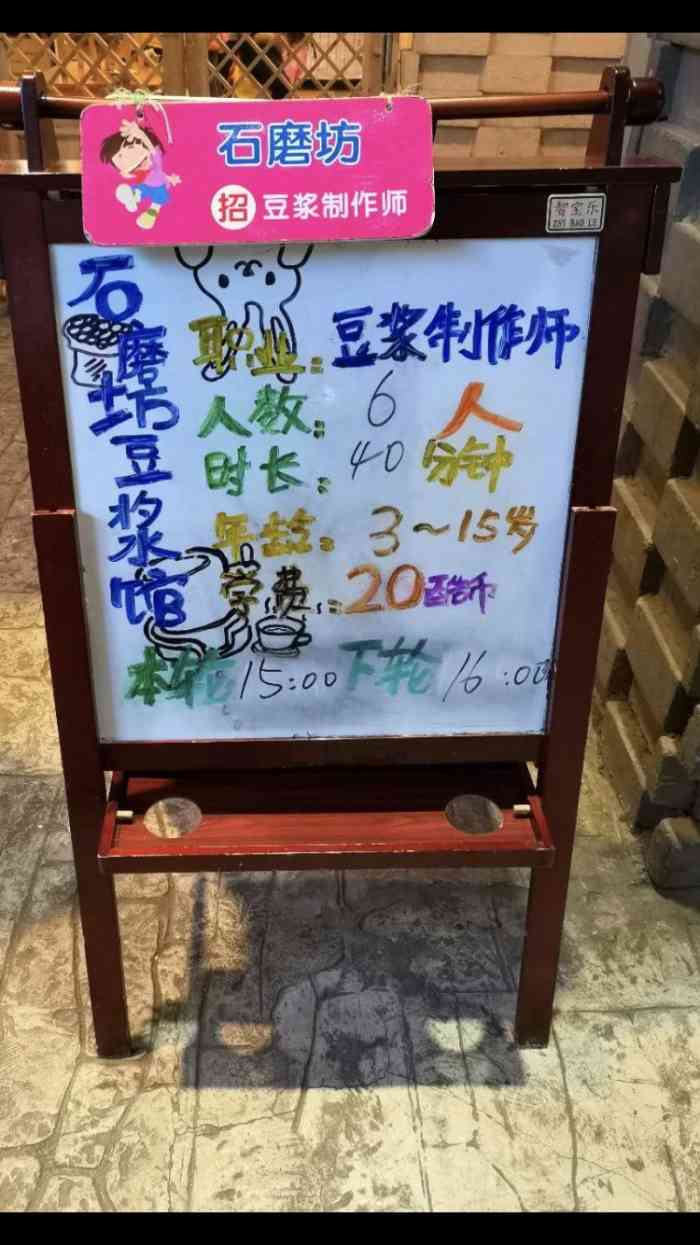 石磨坊
招豆浆制作师
智宝乐
ZHI BAO LE
石磨坊豆浆馆
职业：豆浆制作师
人数：6人
时长：40分钟
年龄：3～15岁
学费：20酷币
本轮15:00 下轮16:00